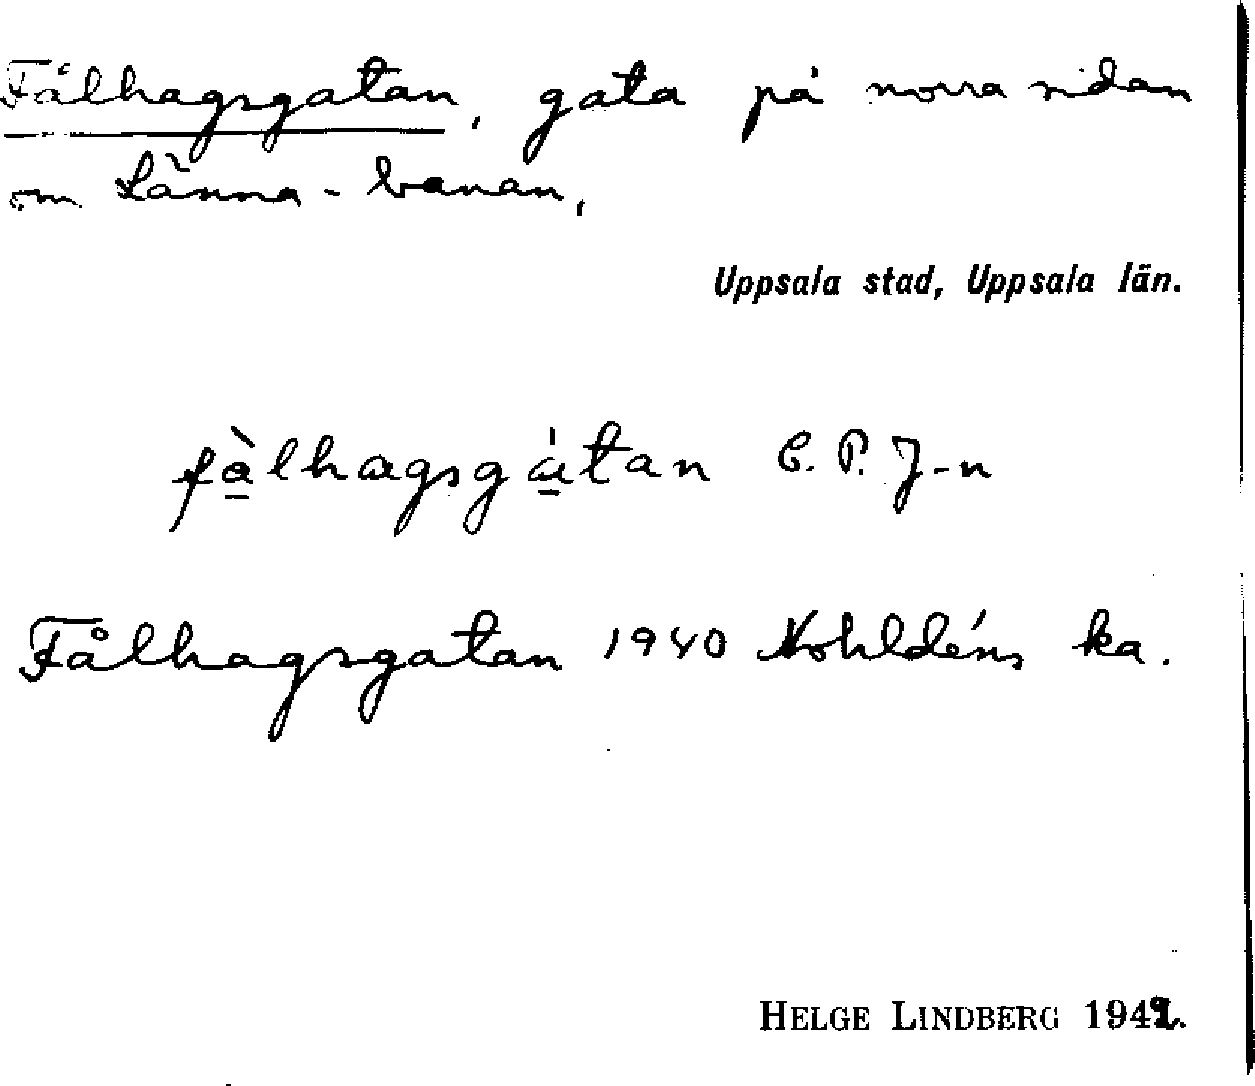 Fålhagsgatan, gata på norra sidan
om Länna-banan,
Uppsala stad, Uppsala län.
fà̱lhagsgá̱tan C. P. J-n
Fålhagsgatan 1940 Nohldéns ka.
HELGE LINDBERG 1942.